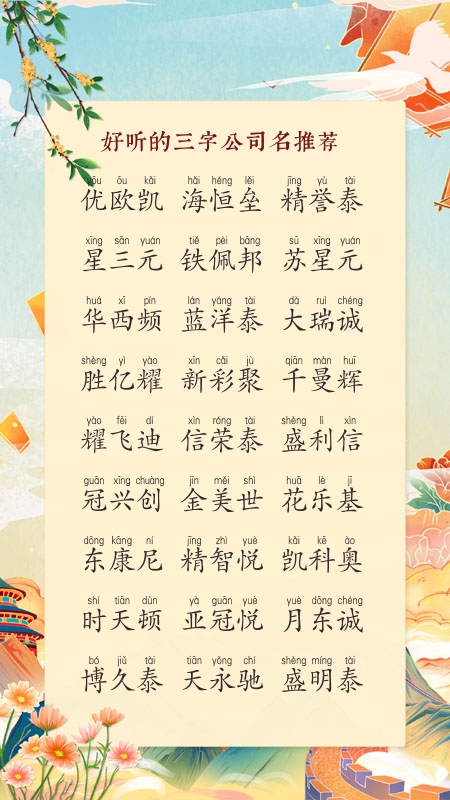 好听的三字公司名推荐
yōu ōu kǎi hǎi héng lěi jīng yù tài
优欧凯 海恒垒 精誉泰
xīng sān yuán tiě pèi bāng sū xīng yuán
星三元 铁佩邦 苏星元
huá xī pín lán yáng tài dà ruì chéng
华西频 蓝洋泰 大瑞诚
shèng yì yào xīn cǎi jù qiān màn huī
胜亿耀 新彩聚 千曼辉
yào fēi dí xìn róng tài shèng lì xìn
耀飞迪 信荣泰 盛利信
guān xīng chuàng jīn měi shì huā lè jī
冠兴创 金美世 花乐基
dōng kāng ní jīng zhì yuè kǎi kē ào
东康尼 精智悦 凯科奥
shí tiān dùn yà guān yuè yuè dōng chéng
时天顿 亚冠悦 月东诚
bó jiǔ tài tiān yǒng chí shèng míng tài
博久泰 天永驰 盛明泰